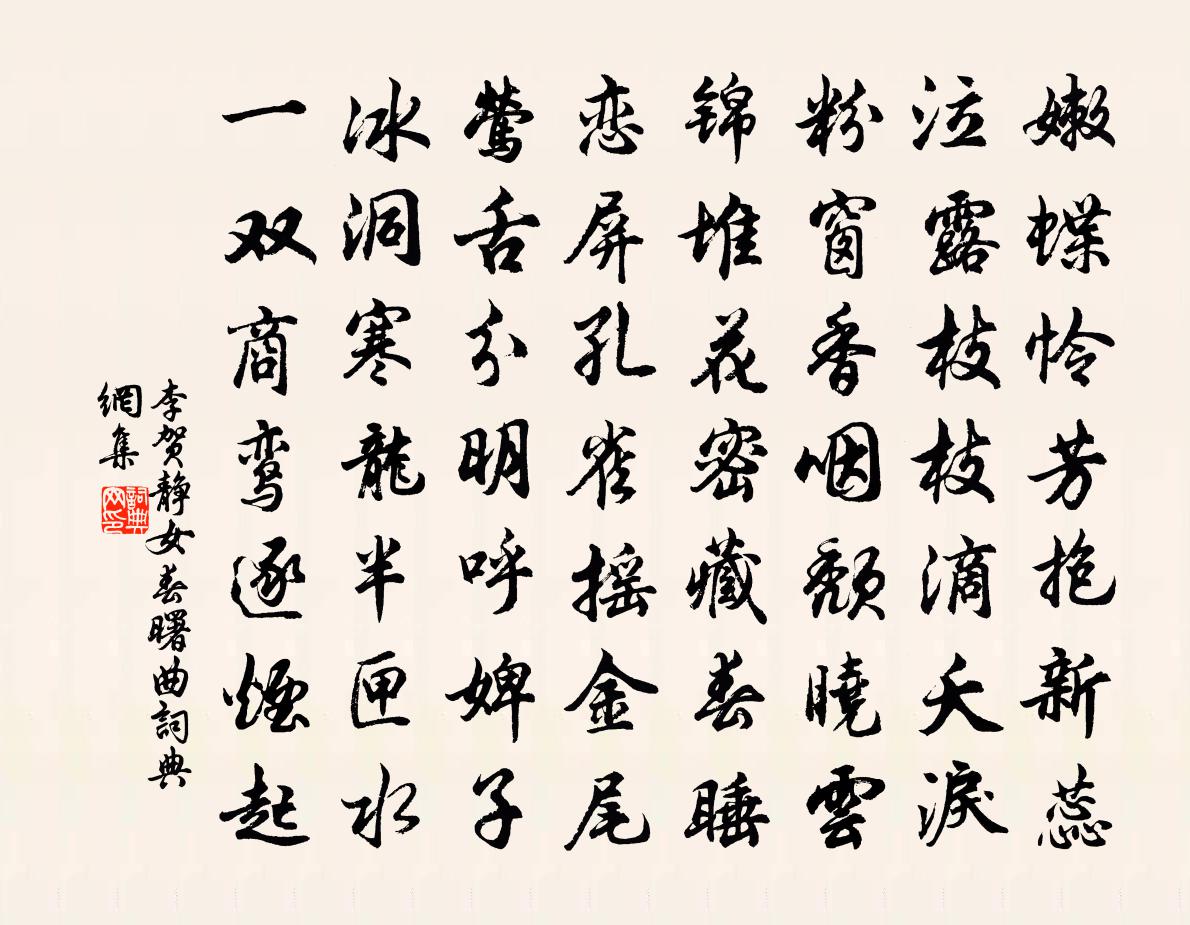 嫩蝶怜芳抱新蕊
泣露枝枝滴夭淚
粉窗香咽頹曉雲
锦堆花密藏春睡
恋屏孔雀摇金尾
莺舌分明呼婢子
冰洞寒龍半匣水
一双商鸾逐煙起
李贺静女春曙曲詞典
網集
詞典
网印